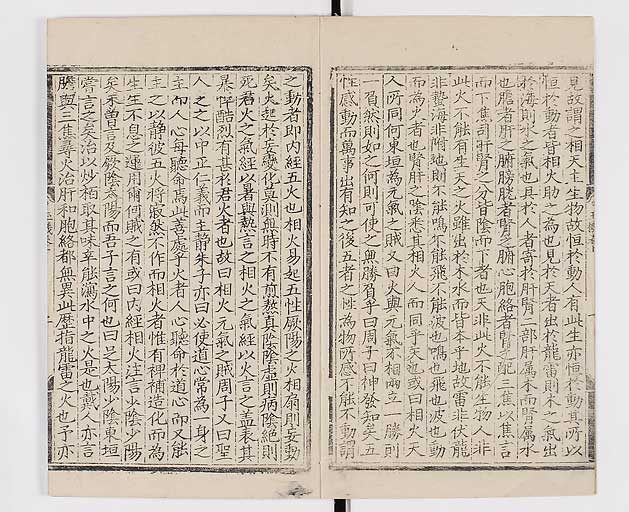 見故謂之相天主生物故恒於動人有此生亦恒於動其所以
恒於動者皆相火助之為也見於天者出於龍雷則木之氣出
於海則水之氣也具於人者寄於肝腎二部肝属木而腎属水
也膽者肝之腑膀胱者腎之腑心胞絡者腎之配三焦以焦言
而下焦司肝腎之分皆陰而下者也天非此火不能生物人非
此火不能有生天之火雖出於木而皆本乎地故雷非伏龍
非蟄海非附地則不能鳴不能飛不能波也鳴也飛也波也動
而為火者也肝腎之陰悉其相火人而同乎天也或曰相火天
人所同何東垣為元氣之賊又曰火與元氣不相兩立一勝則
一負然則如之何則可使之無勝負乎曰周子曰神發知矣五
性感動而萬事出有知之後五者之性為物所感不能不動謂
之動者即内經五火也相火易起五性厥陽之火相扇則妄動
矣火起於妄變化莫測無時不有煎熬真陰陰虛則病陰絕則
死君火之氣經以暑與熱言之相火之氣經以火言之蓋表其
暴悍酷烈有甚於君火者也故曰相火元氣之賊周子又曰聖
人之之以中正仁義而主靜朱子亦曰必使道心常為一身之
主而人心每聽命焉此善處乎火者人心聽命於道心而又能
主之以靜彼五火將寂然不作而相火者惟有裨補造化而為
生生不息之運用爾何賊之有或曰内經相火注言少陰少陽
矣未曾言及厥陰太陽而吾子言之何也曰足太陽少陰東垣
嘗言之矣治以炒柏取其味辛能瀉水中之火是也戴人亦言
膽與三焦尋火治肝和胞絡都無異此歷指龍雷之火也予亦